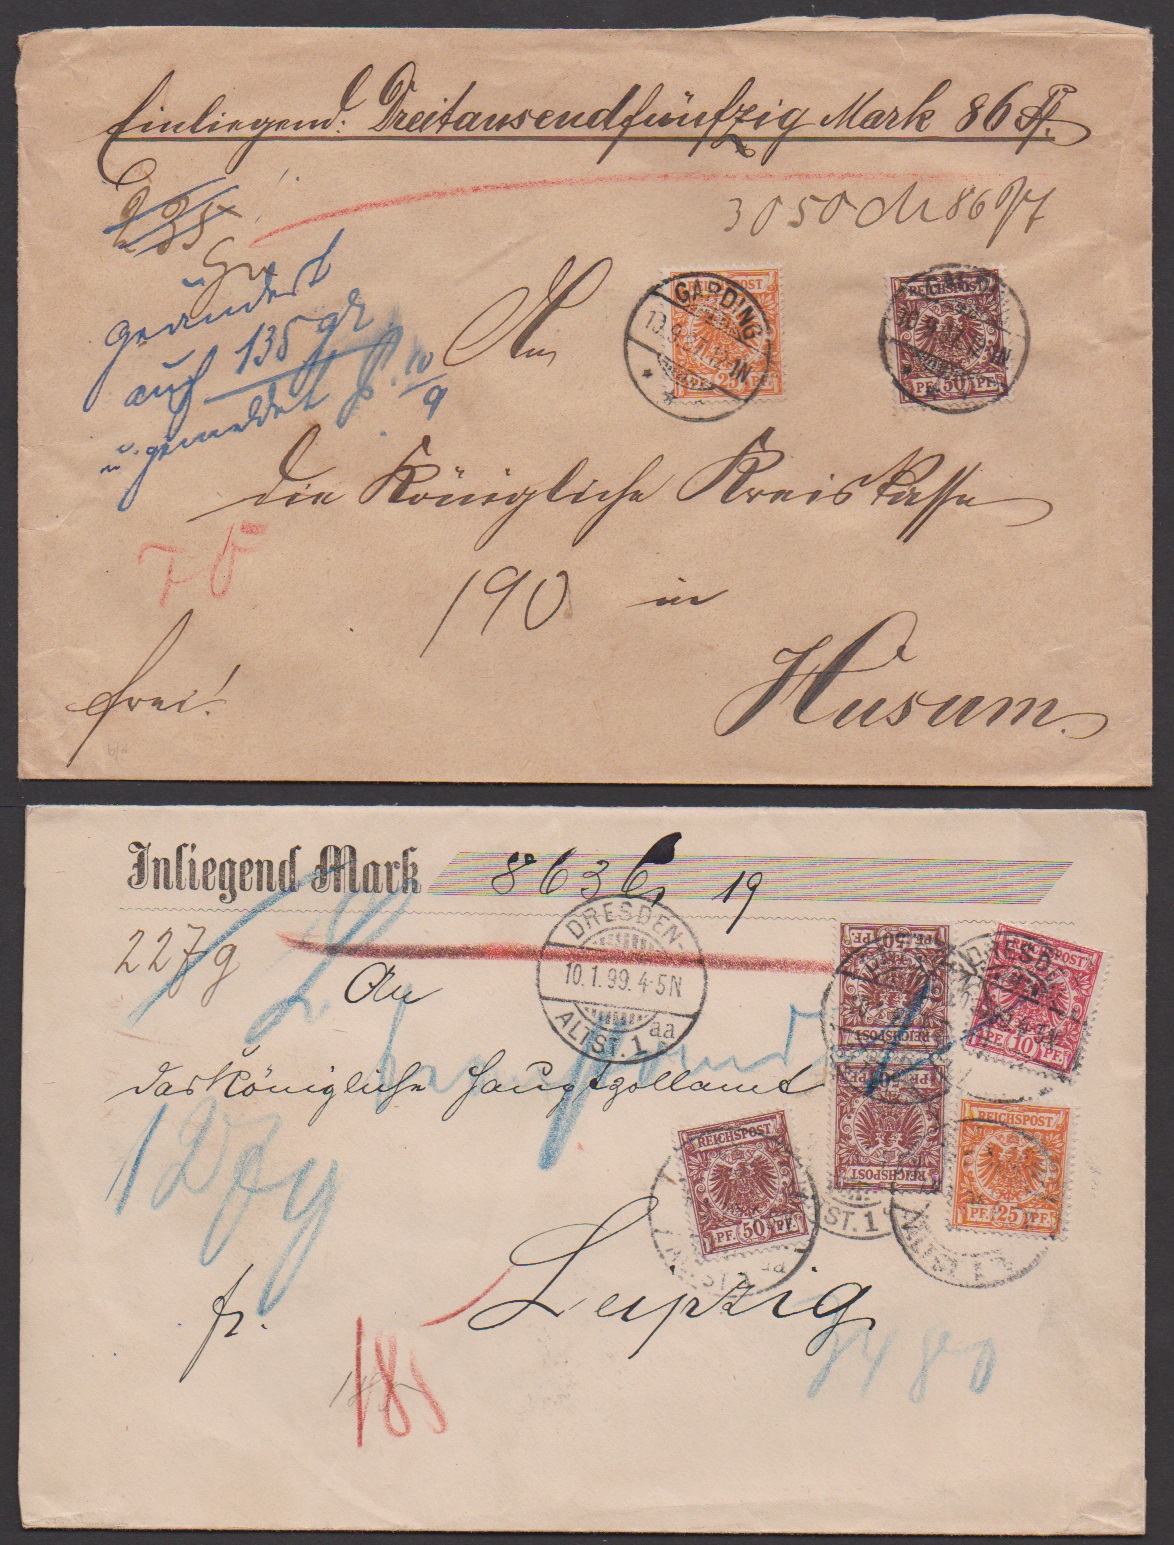 Einliegend: Dreitausendfünfzig Mark 86 Pf.
235
3050 M 86 Pf
geändert
auf 135 gr
u. gemeldet 10/9
An
REICHSPOST
PF. 25 PF.
GARDING
REICHSPOST
PF. 50 PF.
die Königliche Kreiskasse
190 in
frei!
Husum.
Inliegend Mark 8636, 19
227 g
An
DRESDEN-
10.1.99. 4-5N
ALTST. 1 aa
das Königliche Hauptzollamt
REICHSPOST
PF. 50 PF.
REICHSPOST
PF. 50 PF.
REICHSPOST
PF. 10 PF.
DRESDEN
REICHSPOST
PF. 50 PF.
ALTST. 1 aa
ST. 1
REICHSPOST
PF. 25 PF.
ALTST. 1
fr. Leipzig